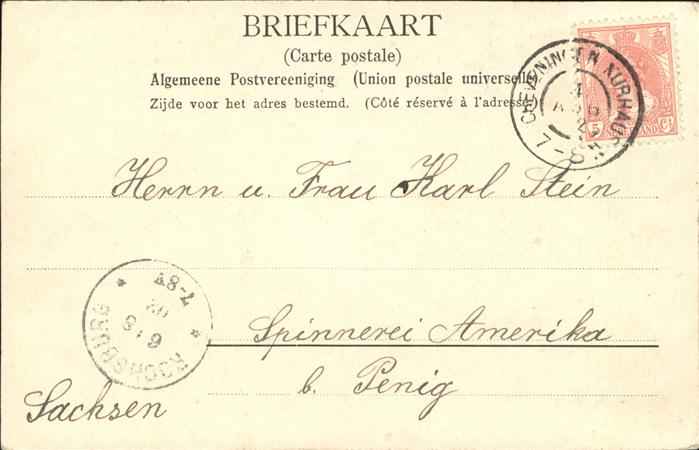 BRIEFKAART
(Carte postale)
Algemeene Postvereeniging (Union postale universelle)
Zijde voor het adres bestemd. (Côté réservé à l'adresse)
5 Ct
KURHAUS
7-8
Herrn u. Frau Karl Stein
Spinnerei Amerika
b. Penig
Sachsen
ROCHSBURG
7-8